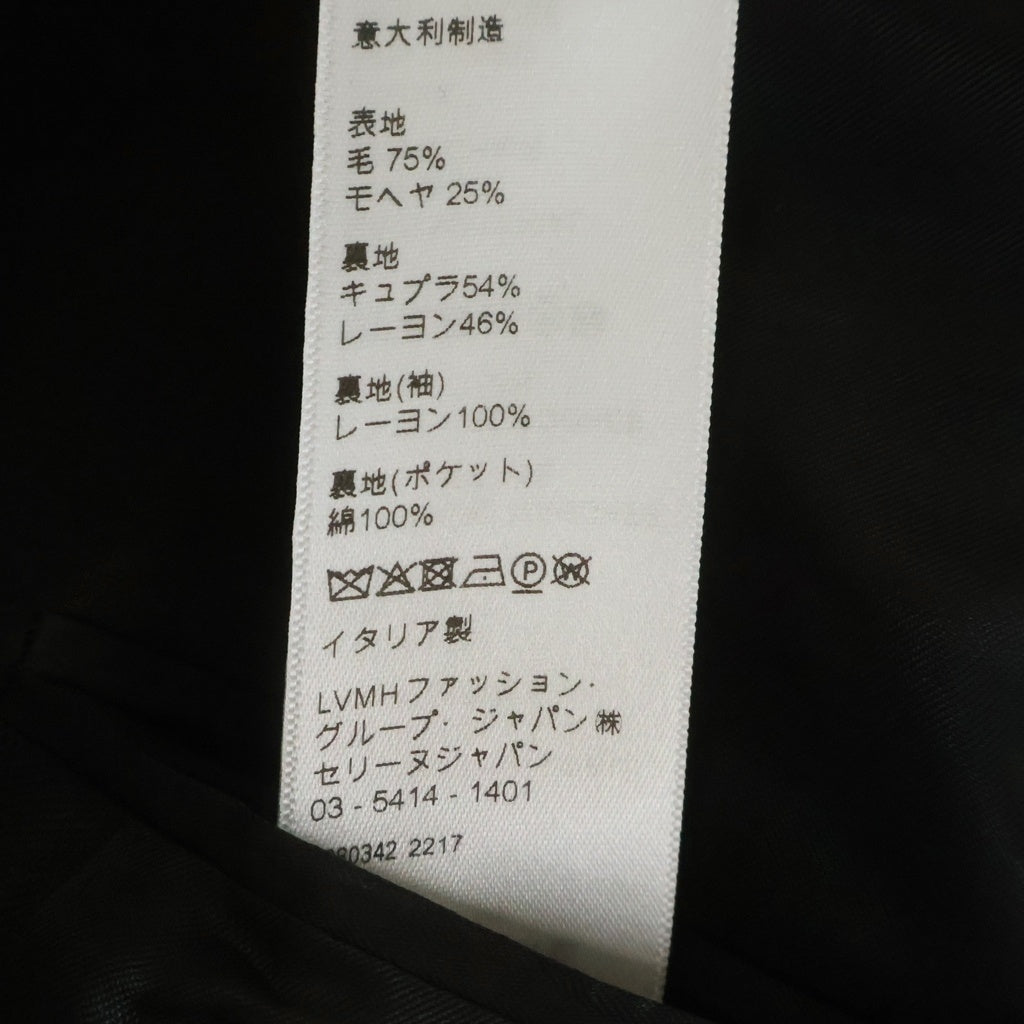 意大利制造
表地
毛 75%
モヘヤ 25%
裏地
キュプラ54%
レーヨン46%
裏地(袖)
レーヨン100%
裏地(ポケット)
綿100%
P W
イタリア製
LVMHファッション・
グループ・ジャパン㈱
セリーヌジャパン
03 - 5414 - 1401
80342 2217